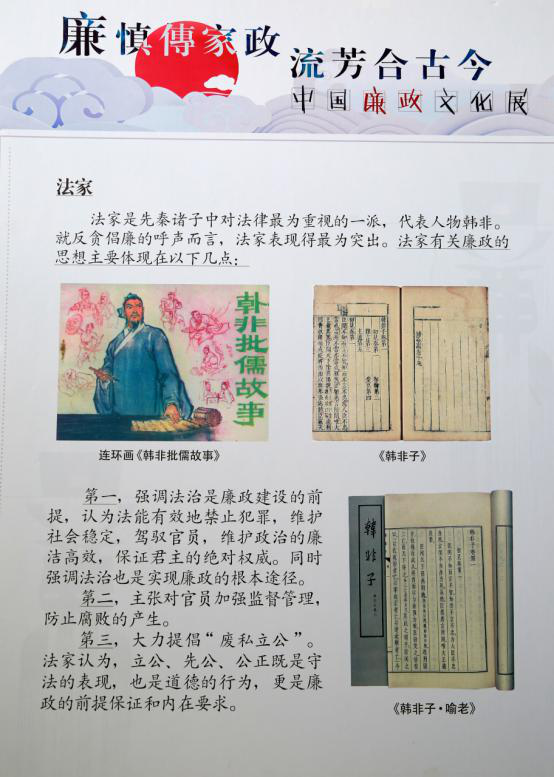 廉慎傳家政
流芳合古今
中国廉政文化展
法家
法家是先秦诸子中对法律最为重视的一派，代表人物韩非。
就反贪倡廉的呼声而言，法家表现得最为突出。法家有关廉政的
思想主要体现在以下几点：
韩非批儒故事
连环画《韩非批儒故事》
《韩非子》
第一，强调法治是廉政建设的前
提，认为法能有效地禁止犯罪，维护
社会稳定，驾驭官员，维护政治的廉
洁高效，保证君主的绝对权威。同时
强调法治也是实现廉政的根本途径。
第二，主张对官员加强监督管理，
防止腐败的产生。
第三，大力提倡“废私立公”。
法家认为，立公、先公、公正既是守
法的表现，也是道德的行为，更是廉
政的前提保证和内在要求。
韓非子
《韩非子·喻老》